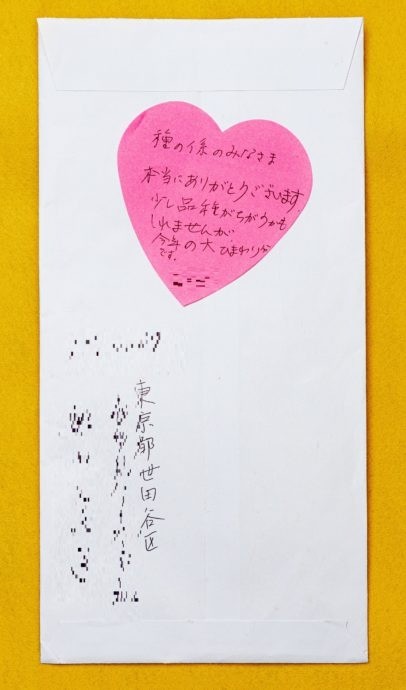 種の係のみなさま
本当にありがとうございます。
少し品種がちがうかも
しれませんが、
今年の大ひまわりから
です。
東京都世田谷区